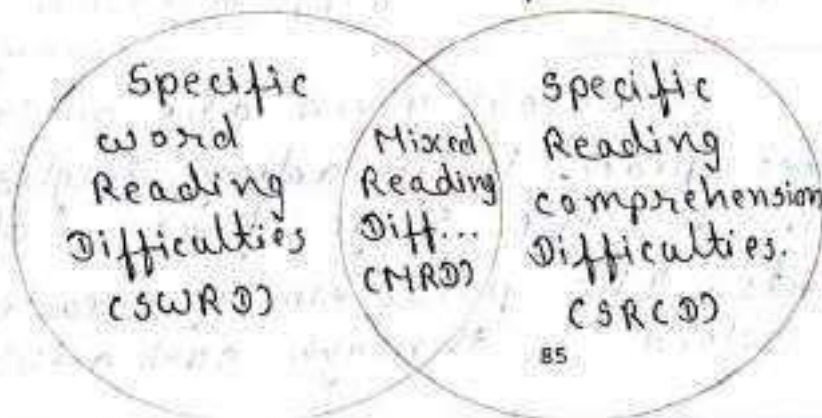 Specific
word
Reading
Difficulties
(SWRD)
Mixed
Reading
Diff...
(MRD)
Specific
Reading
comprehension
Difficulties.
(SRCD)
85